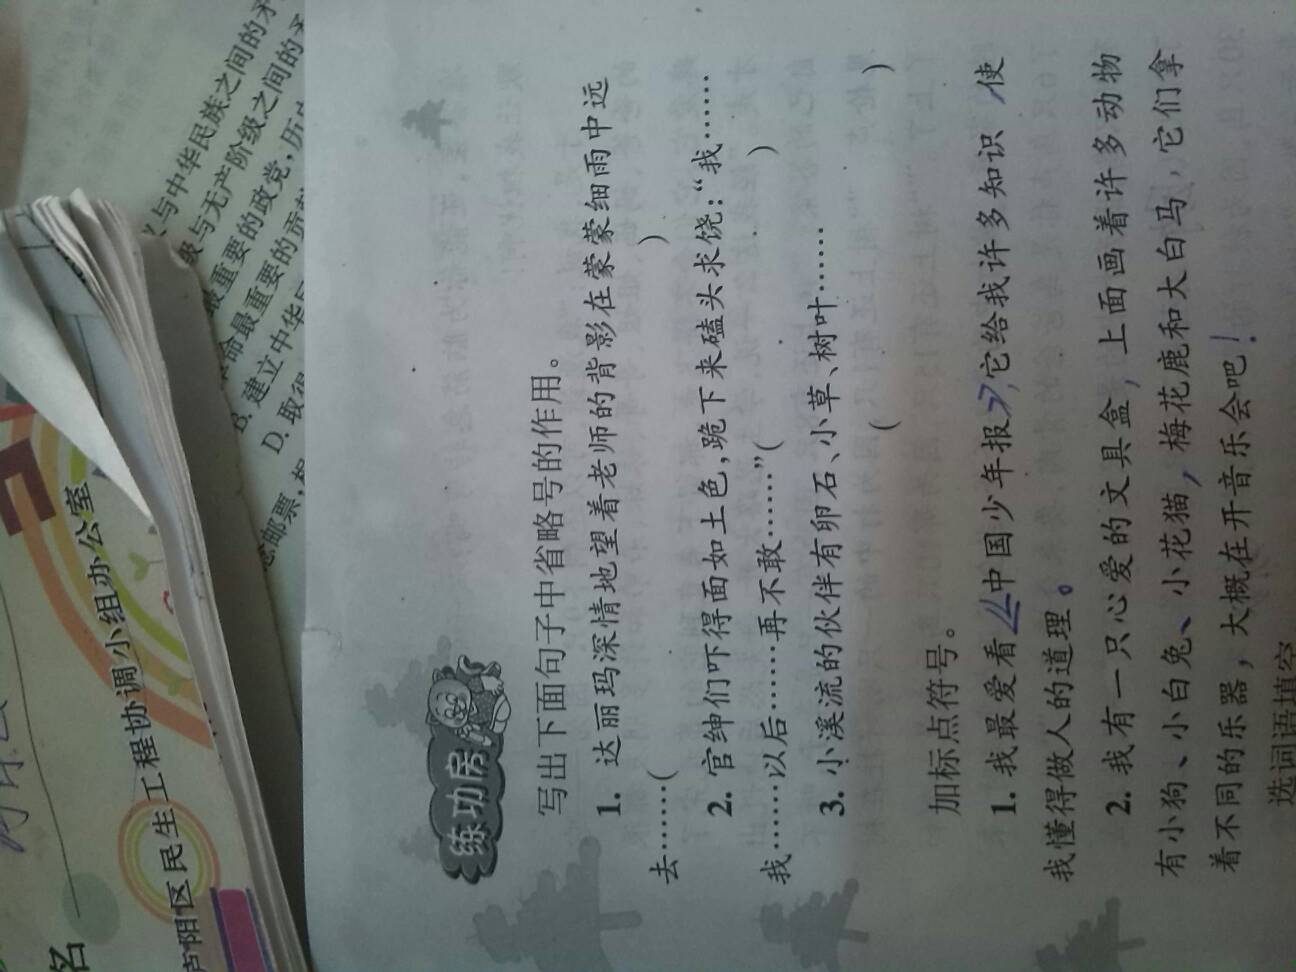 练功房
写出下面句子中省略号的作用。
1. 达丽玛深情地望着老师的背影在蒙蒙细雨中远
去……(　　)
2. 官绅们吓得面如土色,跪下来磕头求饶:“我……
我……以后……再不敢……”(　　)
3. 小溪流的伙伴有卵石、小草、树叶……
(　　)
加标点符号。
1. 我最爱看《中国少年报》,它给我许多知识,使
我懂得做人的道理。
2. 我有一只心爱的文具盒,上面画着许多动物
有小狗、小白兔、小花猫,梅花鹿和大白马,它们拿
着不同的乐器,大概在开音乐会吧!
选词语填空
与中华民族之间的矛
级与无产阶级之间的矛
最重要的政党,历
命最重要的贡献
B. 建立中华民
D. 取得
邮票,
名
庐阳区民生工程协调小组办公室